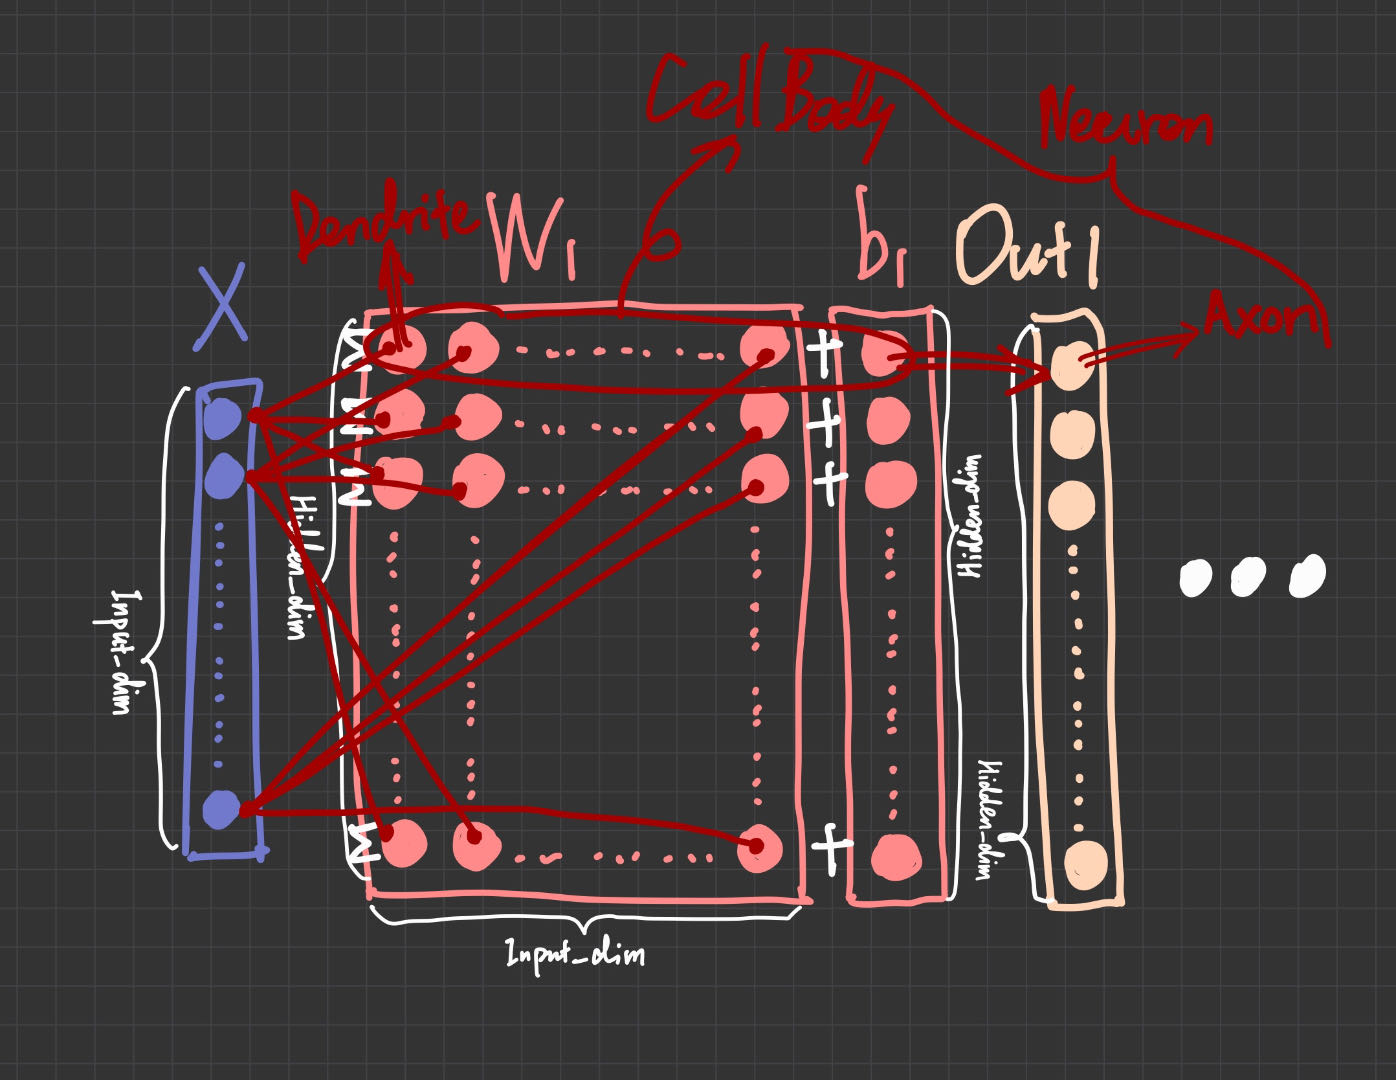 Cell Body
Neuron
Dendrite
W₁
b₁
Out1
X
Axon
Σ
+
Σ
+
Σ
+
Hidden_dim
Hidden_dim
Input_dim
Hidden_dim
Σ
+
Input_dim